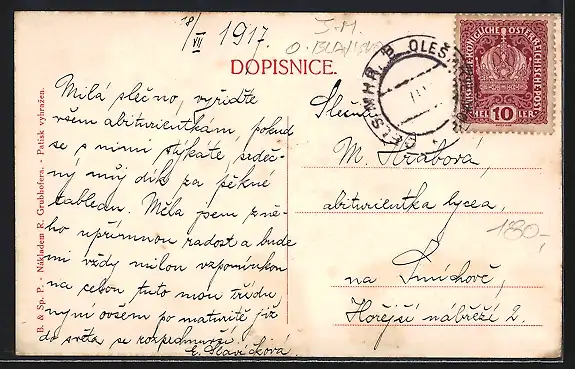 18/VII 1917.
DOPISNICE.
Milá slečno, vyřiďte
všem abiturientkám, pokud
se s nimi stýkáte, srdeč-
ný můj dík za pěkné
tableau. Měla jsem z ně-
ho upřímnou radost a bude
mi vždy milou vzpomínkou
na celou tuto mou třídu,
nyní ovšem po maturitě již
do světa se rozprchnuvší.
E. Slavíčková.
B. & Sp. P. - Nákladem R. Grubhofera. - Patisk vyhražen.
OLEŠ
OELSMHR.
10
Slečna
M. Hrabová,
abiturientka lycea,
na Smíchově,
Hořejší nábřeží 2.
180,-